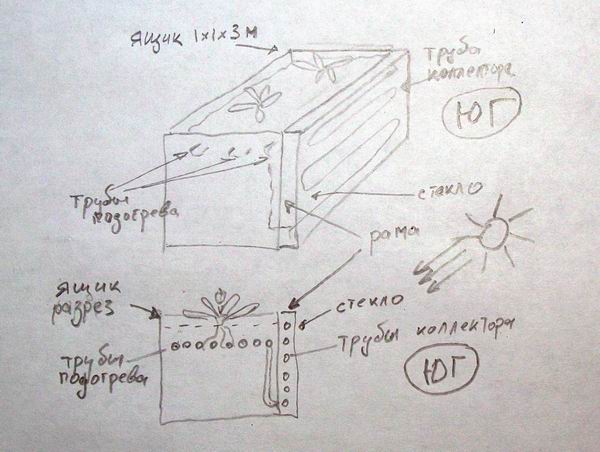 ящик 1х1х3 м
труба
коллектора
ЮГ
трубы
подогрева
стекло
рама
ящик
разрез
стекло
трубы коллектора
трубы
подогрева
ЮГ